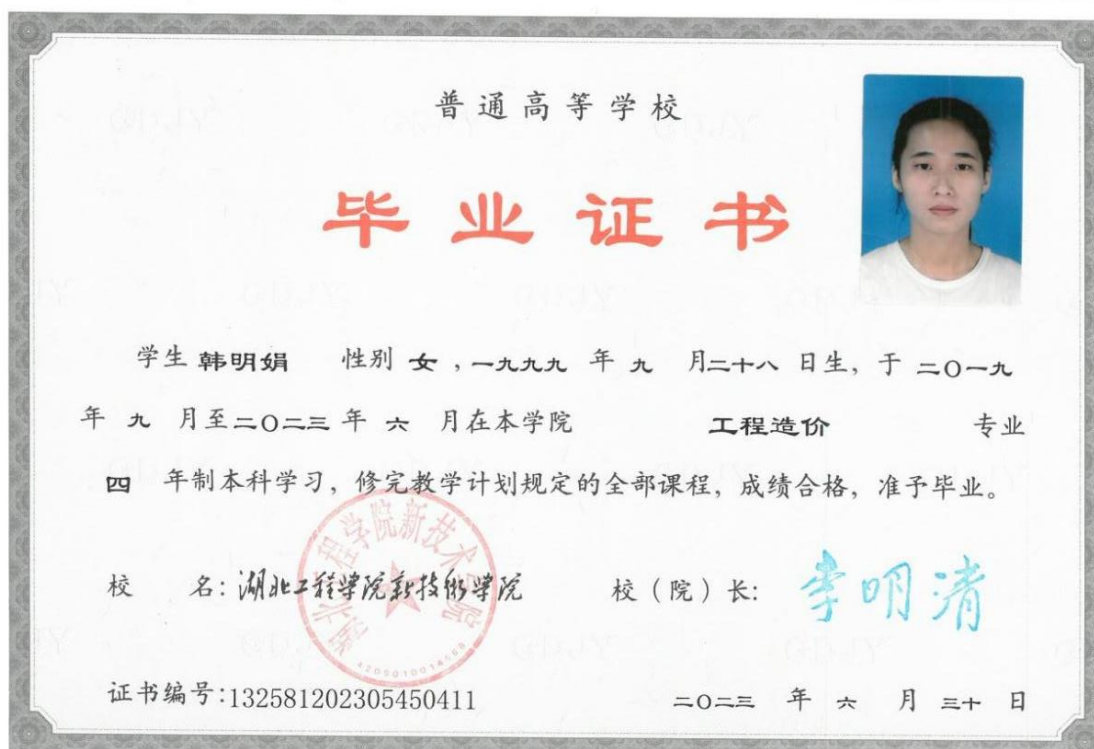 普通高等学校
毕业证书
学生 韩明娟 性别 女 , 一九九九 年 九 月二十八 日生, 于 二〇一九
年 九 月至二〇二三 年 六 月在本学院 工程造价 专业
四 年制本科学习, 修完教学计划规定的全部课程, 成绩合格, 准予毕业。
校 名: 湖北工程学院新技术学院 校(院)长: 李明清
湖北工程学院新技术学院
证书编号:132581202305450411 二〇二三 年 六 月 三十 日